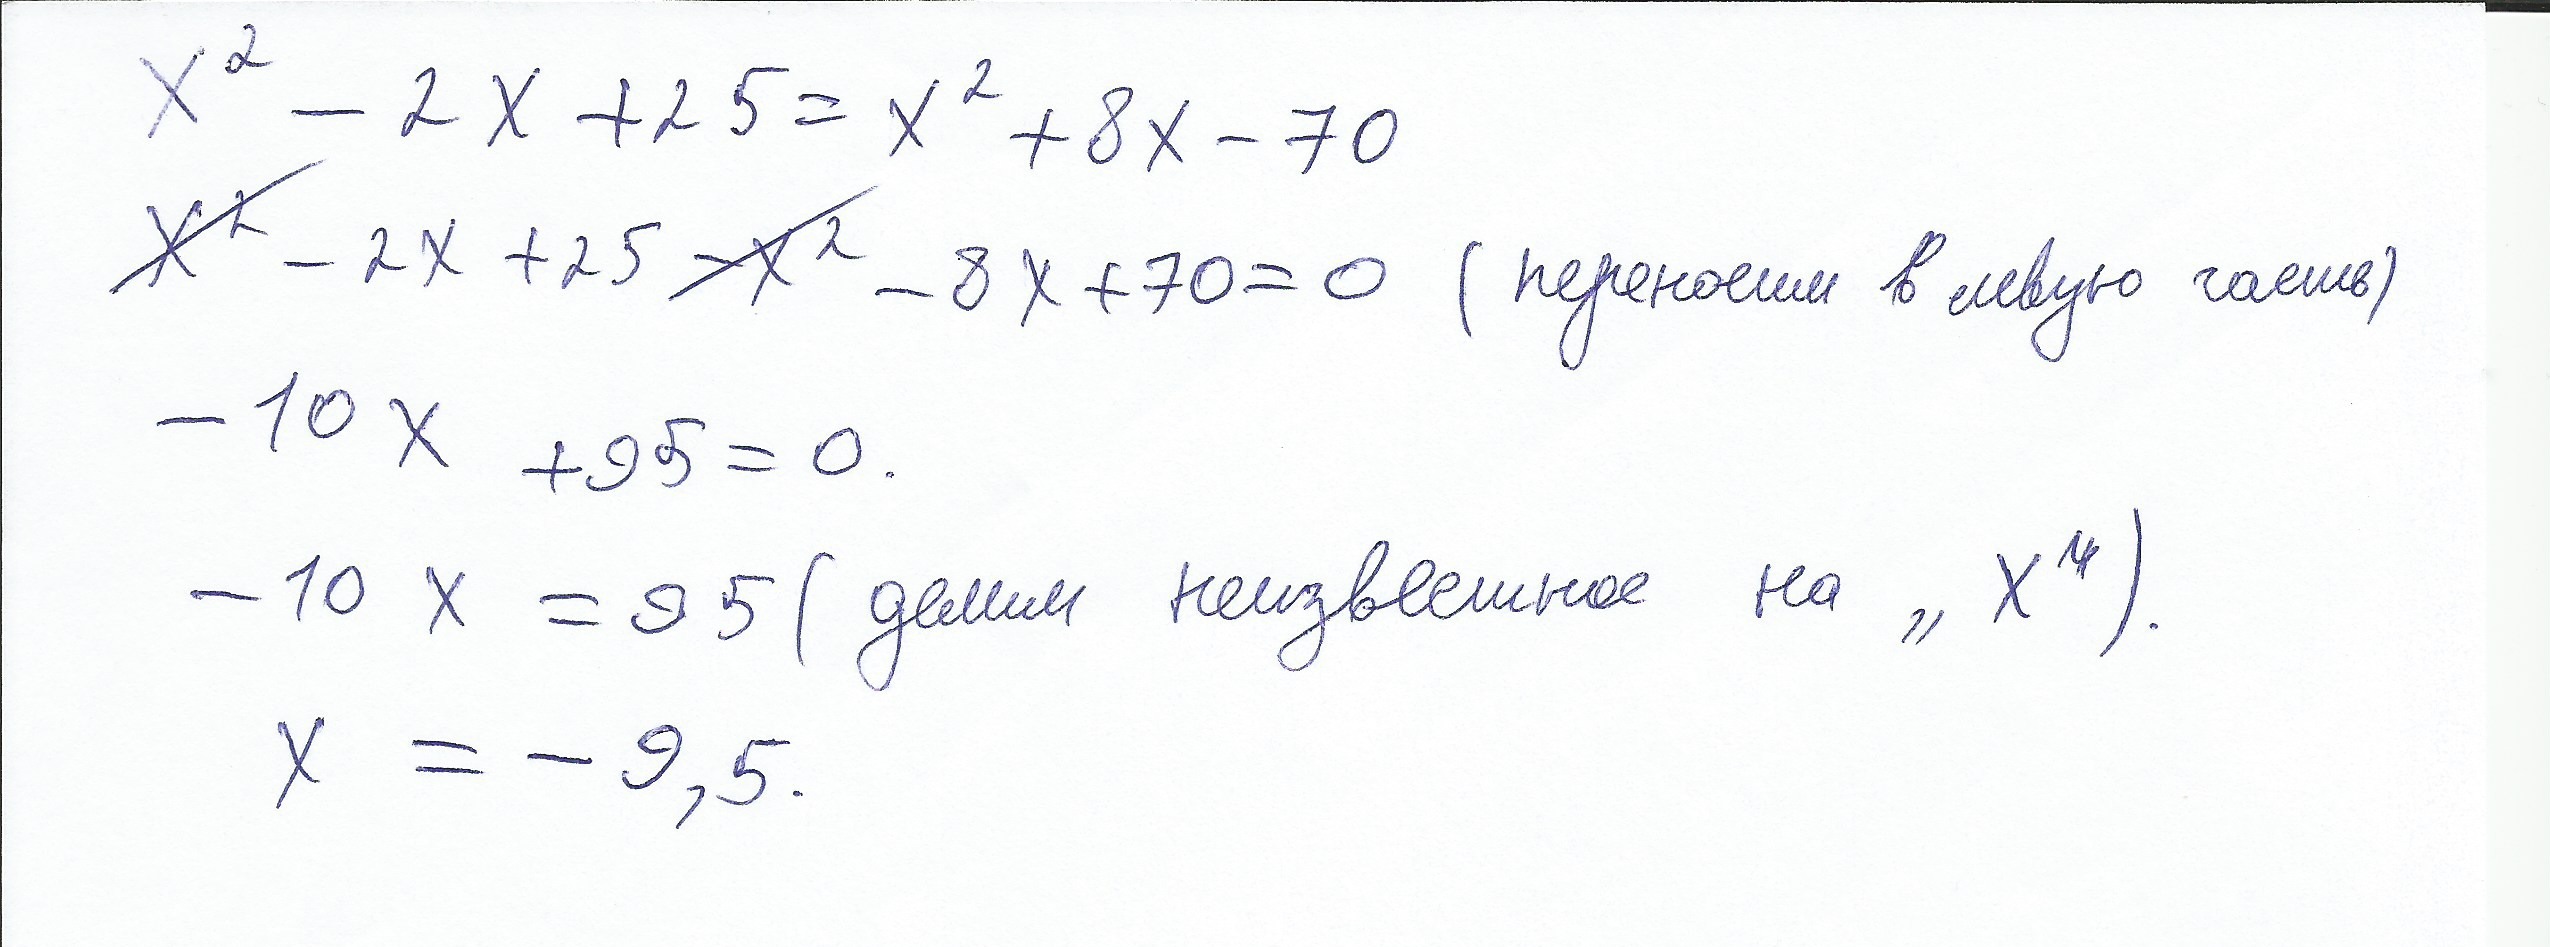 x² - 2x + 25 = x² + 8x - 70
x² - 2x + 25 - x² - 8x + 70 = 0 (переносим в левую часть)
-10x + 95 = 0.
-10x = 95 (делим неизвестное на „x“).
x = -9,5.